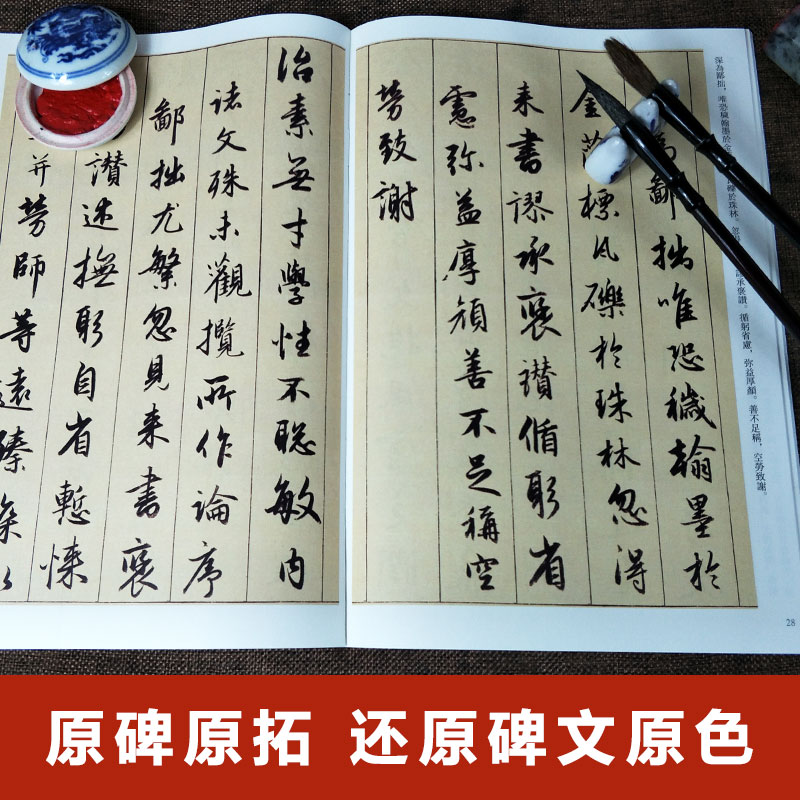 深為鄙拙，唯恐穢翰墨於金
礫於珠林。忽
承褒讚。循躬省慮，弥益厚顏。善不足稱，空勞致謝。
為鄙拙唯恐穢翰墨於
金標瓦礫於珠林忽得
来書謬承褒讃循躬省
慮弥益厚顏善不足稱空
勞致謝
治素無才學性不聡敏内
諸文殊未觀攬所作論序
鄙拙尤繁忽見来書褒
讃述撫躬自省慙悚
并勞師等遠臻深以
28
原碑原拓 还原碑文原色